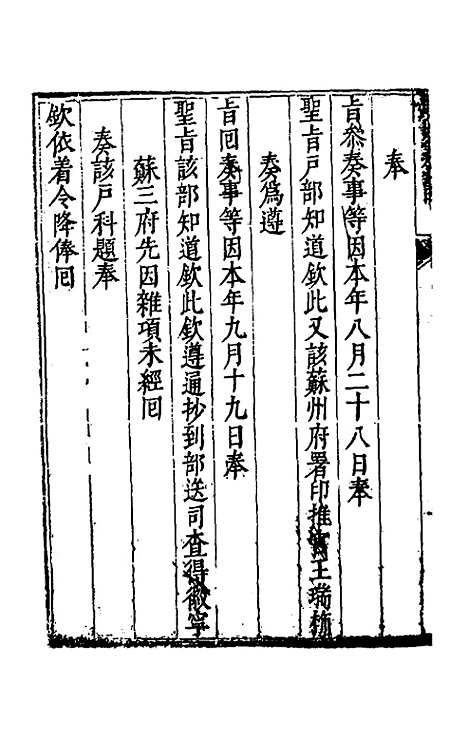 奉
旨叅奏事等因本年八月二十八日奉
聖旨戸部知道欽此又該蘇州府署印推官王瑞栴
奏爲遵
旨囘奏事等因本年九月十九日奉
聖旨該部知道欽此欽遵通抄到部送司查得徽寧
蘇三府先因雜項未經囘
奏該戸科題奉
欽依着令降俸囘